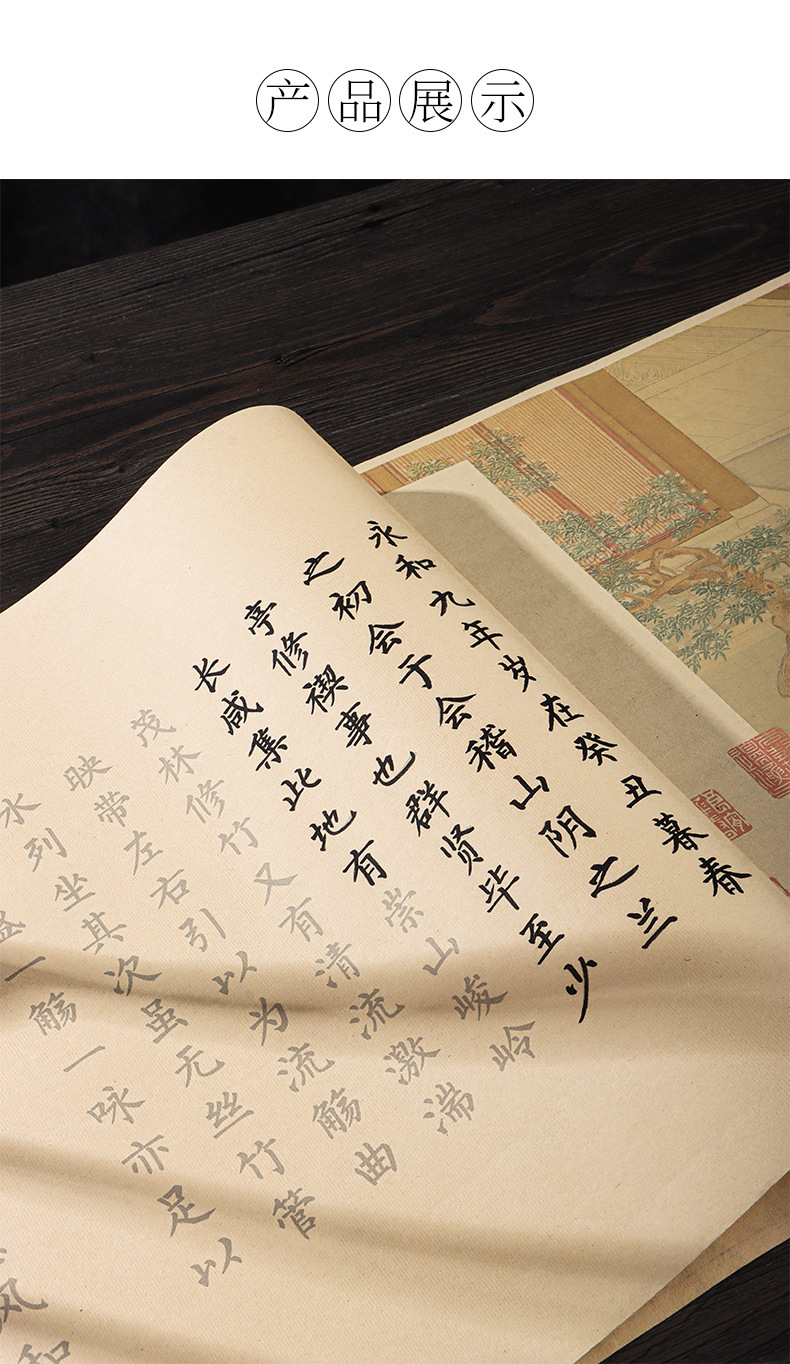 产品展示
永和九年岁在癸丑暮春
之初会于会稽山阴之兰
亭修禊事也群贤毕至少
长咸集此地有崇山峻岭
茂林修竹又有清流激湍
映带左右引以为流觞曲
水列坐其次虽无丝竹管
盛一觞一咏亦足以
风和